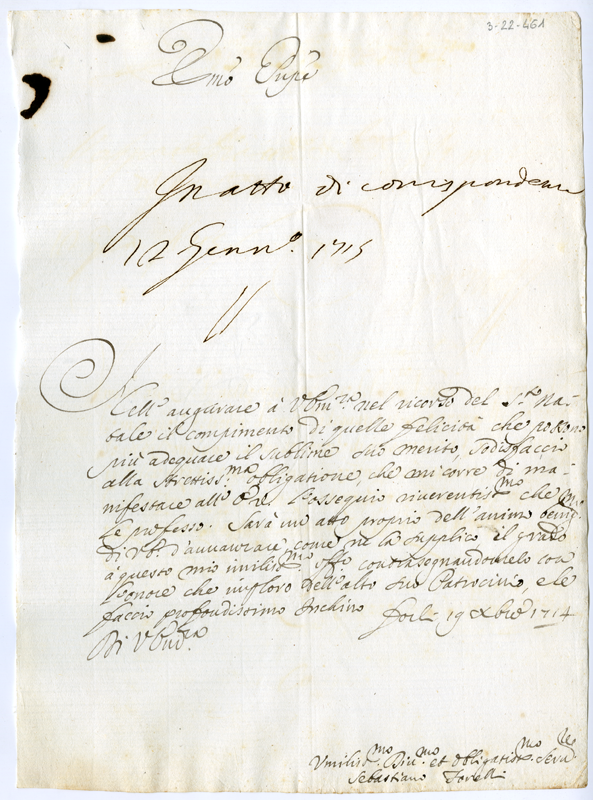 3-22-461
E.mo Pnpe
In atto di corrispondenza
12 Genn.o 1715
Nell'augurare à V. Em.za nel ricorso del S.to Na-
tale il compimento di quelle felicità che possono
più adequare il sublime suo merito, sodisfaccio
alla strettiss.ma obligatione, che mi corre di ma-
nifestare all' l'ossequio riverentiss.mo che
le professo. Sarà un atto proprio dell'animo
di V. d'annarrare come ne la supplico il grado
à questo mio umiliss.mo off.o contrasegnandomelo con
l'onore che imploro dell'alto suo Patrocinio, e le
faccio profondissimo Inchino Forlì 19 Xbre 1714
Di V. Em.za
Umiliss.mo Div.mo et Obligatiss.mo Serv.re
Sebastiano